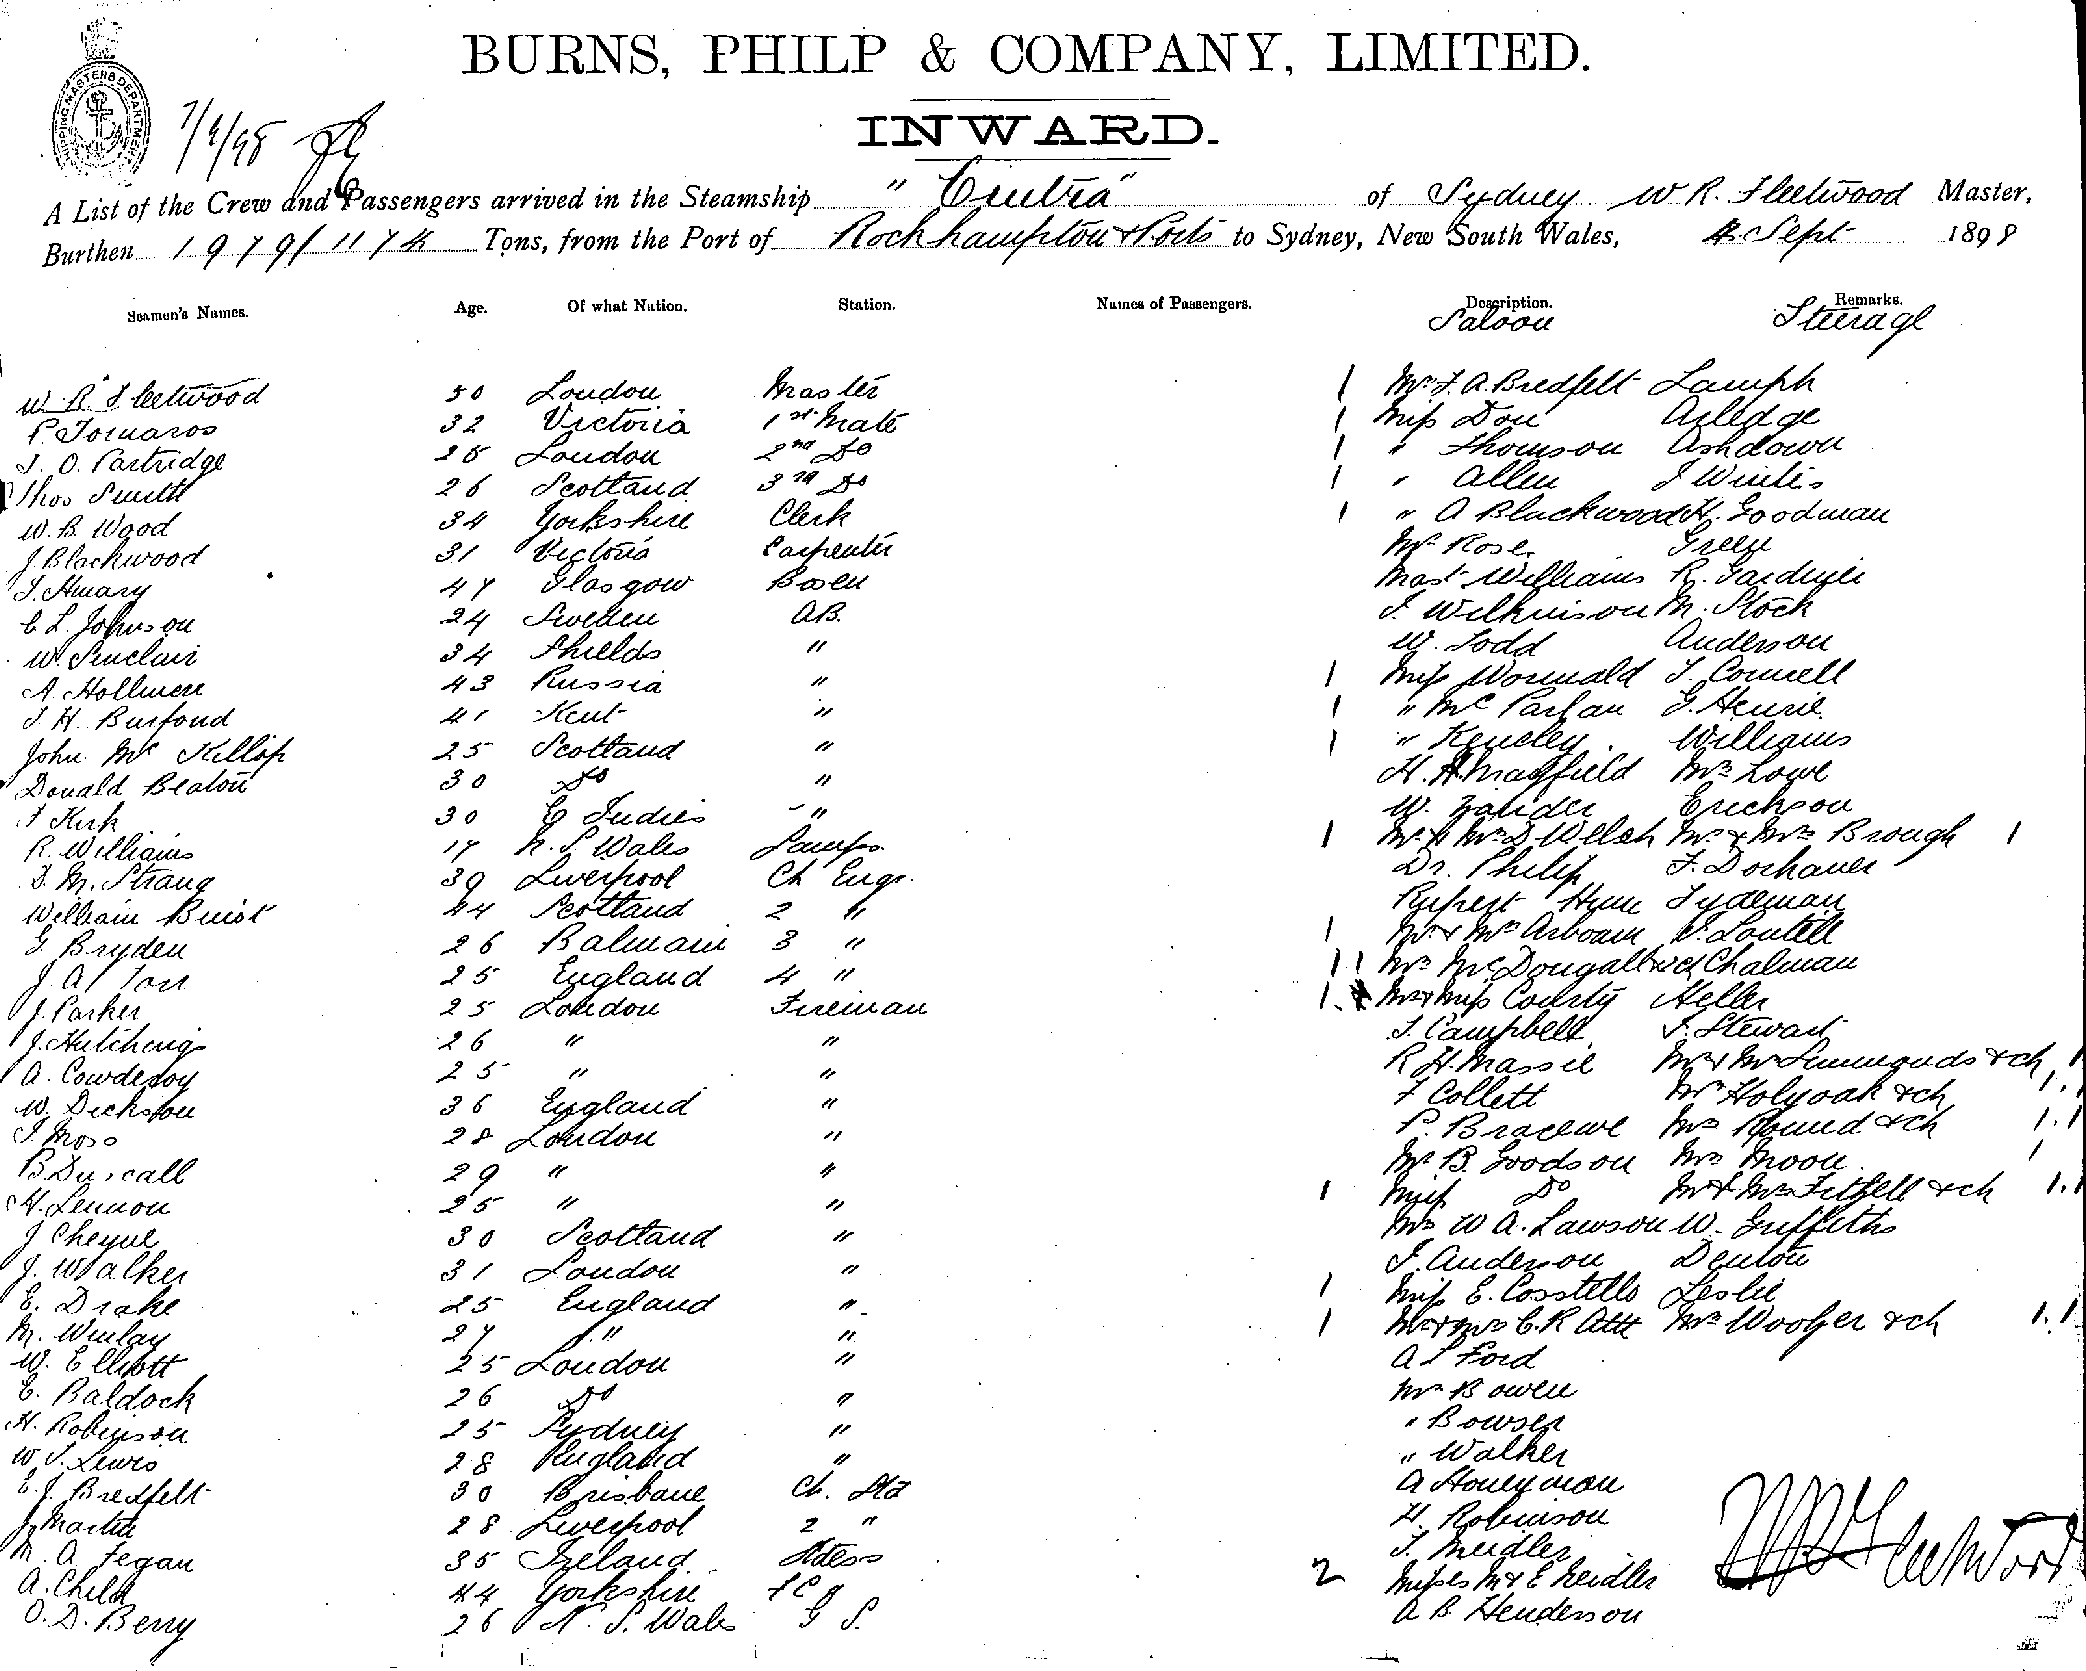 BURNS, PHILP & COMPANY, LIMITED.
SHIPPING MASTERS DEPARTMENT
7/9/98
INWARD.
A List of the Crew and Passengers arrived in the Steamship "Cintra" of Sydney W R. Fleetwood Master,
Burthen 1979/1174 Tons, from the Port of Rockhampton & Ports to Sydney, New South Wales, 4 Sept 1898
Seamen's Names. Age. Of what Nation. Station. Names of Passengers. Description. Remarks.
Saloon Steerage
W. R. Fleetwood 50 London Master 1 Mrs F. A. Bredfelt Lamph
P. Tornaros 32 Victoria 1st Mate 1 Miss Don Arledge
J. O. Partridge 25 London 2nd Do 1 " Thomson Ashdown
Thos Smith 26 Scotland 3rd Do 1 " Allen J Winter
W. B. Wood 34 Yorkshire Clerk 1 " A Blackwood H. Goodman
J. Blackwood 31 Victoria Carpenter Mr Rose Green
47 Glasgow Bosen Mast Williams R. Gardner
C L. Johnson 24 Sweden AB. J. Wilkinson M. Stock
W. Sinclair 34 Shields " W. Todd Anderson
A. Hollmen 43 Russia " 1 Miss Wormald T. Connell
J H. Burfond 41 Kent " 1 " McParlan G. Henrie
John McKillop 25 Scotland " 1 " Keneley Williams
Donald Beaton 30 Do " H. A Mayfield Mrs Lowe
J Kirk 30 E Indies " W. Zander Erickson
R. Williams 17 N. S Wales Lamps 1 Mr & Mrs D. Welsh Mr & Mrs Brough 1
D. M. Strang 39 Liverpool Ch Engr. Dr. Philip F. Dorhauer
William Buist 44 Scotland 2 " Rupert Hume Tydeman
G Bryden 26 Balmain 3 " 1 Mr & Mrs
J. A. Torr 25 England 4 " 1 1 Mrs McDougall & ch Chalman
J. Parker 25 London Fireman 1. Mr & Miss County Heller
J. Hutchings 26 " " J. Campbell J. Stewart
A. Cowderoy 25 " " R H. Massie Mr & Mrs Simmonds & ch 1
W. Dickson 36 England " F Collett Mrs Holyoak & ch 1.1
J. Moss 28 London " P. Bracewe Mrs Round & ch 1.1
B. Duscall 29 " " Mr B. Goodson Mrs Moon 1
H. Lennon 25 " " 1 Miss Do Mr & Mrs & ch 1.1
J Cheyne 30 Scotland " Mrs W A. Lawson W. Griffiths
J. Walker 31 London " J. Anderson Denton
E. Drake 25 England " 1 Miss E. Cosstello Leslie
M. Winlay 27 " " 1 Mr & Mrs C. R Atte Mrs Woolfer & ch 1.1
W. Elliott 25 London " A S Ford
E. Baldock 26 Do " Mrs Bowen
H. Robinson 25 Sydney " " Bowser
W. J. Lewis 28 England " " Walker
E. J. Bredfelt 30 Brisbane Ch. Std A Honeyman
J. Martin 28 Liverpool 2 " H. Robinson
M. A Fegan 35 Ireland Stdess J. Meidler
A. Child 44 Yorkshire 2 Misses M & E Meidler
O. D. Berry 26 N. S. Wales G S. A B. Henderson
W R Fleetwood